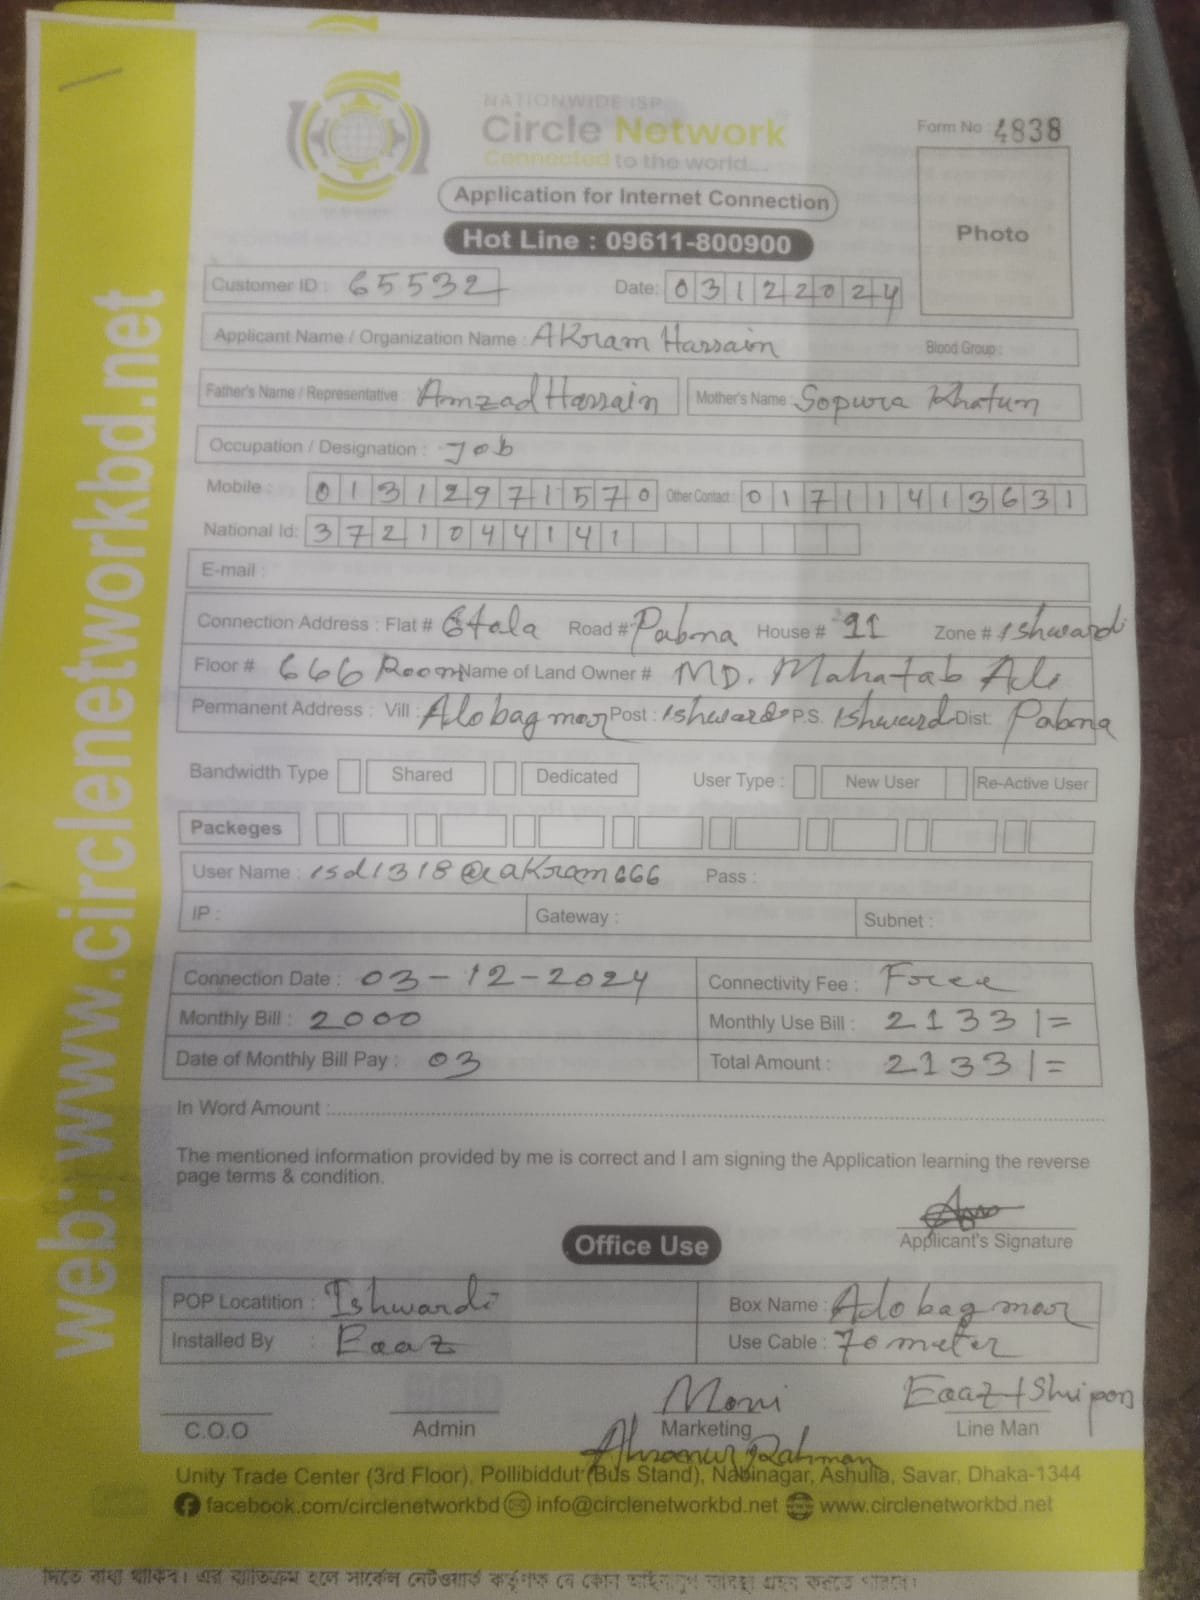 NATIONWIDE ISP
Circle Network
Connected to the world...
Form No : 4838
Application for Internet Connection
Photo
Hot Line : 09611-800900
Customer ID : 65532 Date: 03122024
Applicant Name / Organization Name : AKram Hassain Blood Group :
Father's Name / Representative : Amzad Hassain Mother's Name : Sopura Khatun
Occupation / Designation : Job
Mobile : 01312971570 Other Contact : 01711413631
National Id: 3721044141
E-mail :
Connection Address : Flat # 6tala Road # Pabna House # 11 Zone # Ishwardi
Floor # 666 Room Name of Land Owner # MD. Mahatab Ali
Permanent Address : Vill : Alobagmor Post : Ishwardi P.S. Ishwardi Dist. Pabna
Bandwidth Type Shared Dedicated User Type : New User Re-Active User
Packeges
User Name : isd1318@akram666 Pass :
IP : Gateway : Subnet :
Connection Date : 03-12-2024 Connectivity Fee : Free
Monthly Bill : 2000 Monthly Use Bill : 2133/=
Date of Monthly Bill Pay : 03 Total Amount : 2133/=
In Word Amount :
The mentioned information provided by me is correct and I am signing the Application learning the reverse
page terms & condition.
Applicant's Signature
Office Use
POP Locatition : Ishwardi Box Name : Alobagmoor
Installed By : Eaaz Use Cable : 70 meter
Moni Eaaz+Shipon
C.O.O Admin Marketing Line Man
Ahsanur Rahman
Unity Trade Center (3rd Floor), Pollibiddut (Bus Stand), Nabinagar, Ashulia, Savar, Dhaka-1344
facebook.com/circlenetworkbd info@circlenetworkbd.net www.circlenetworkbd.net
web: www.circlenetworkbd.net